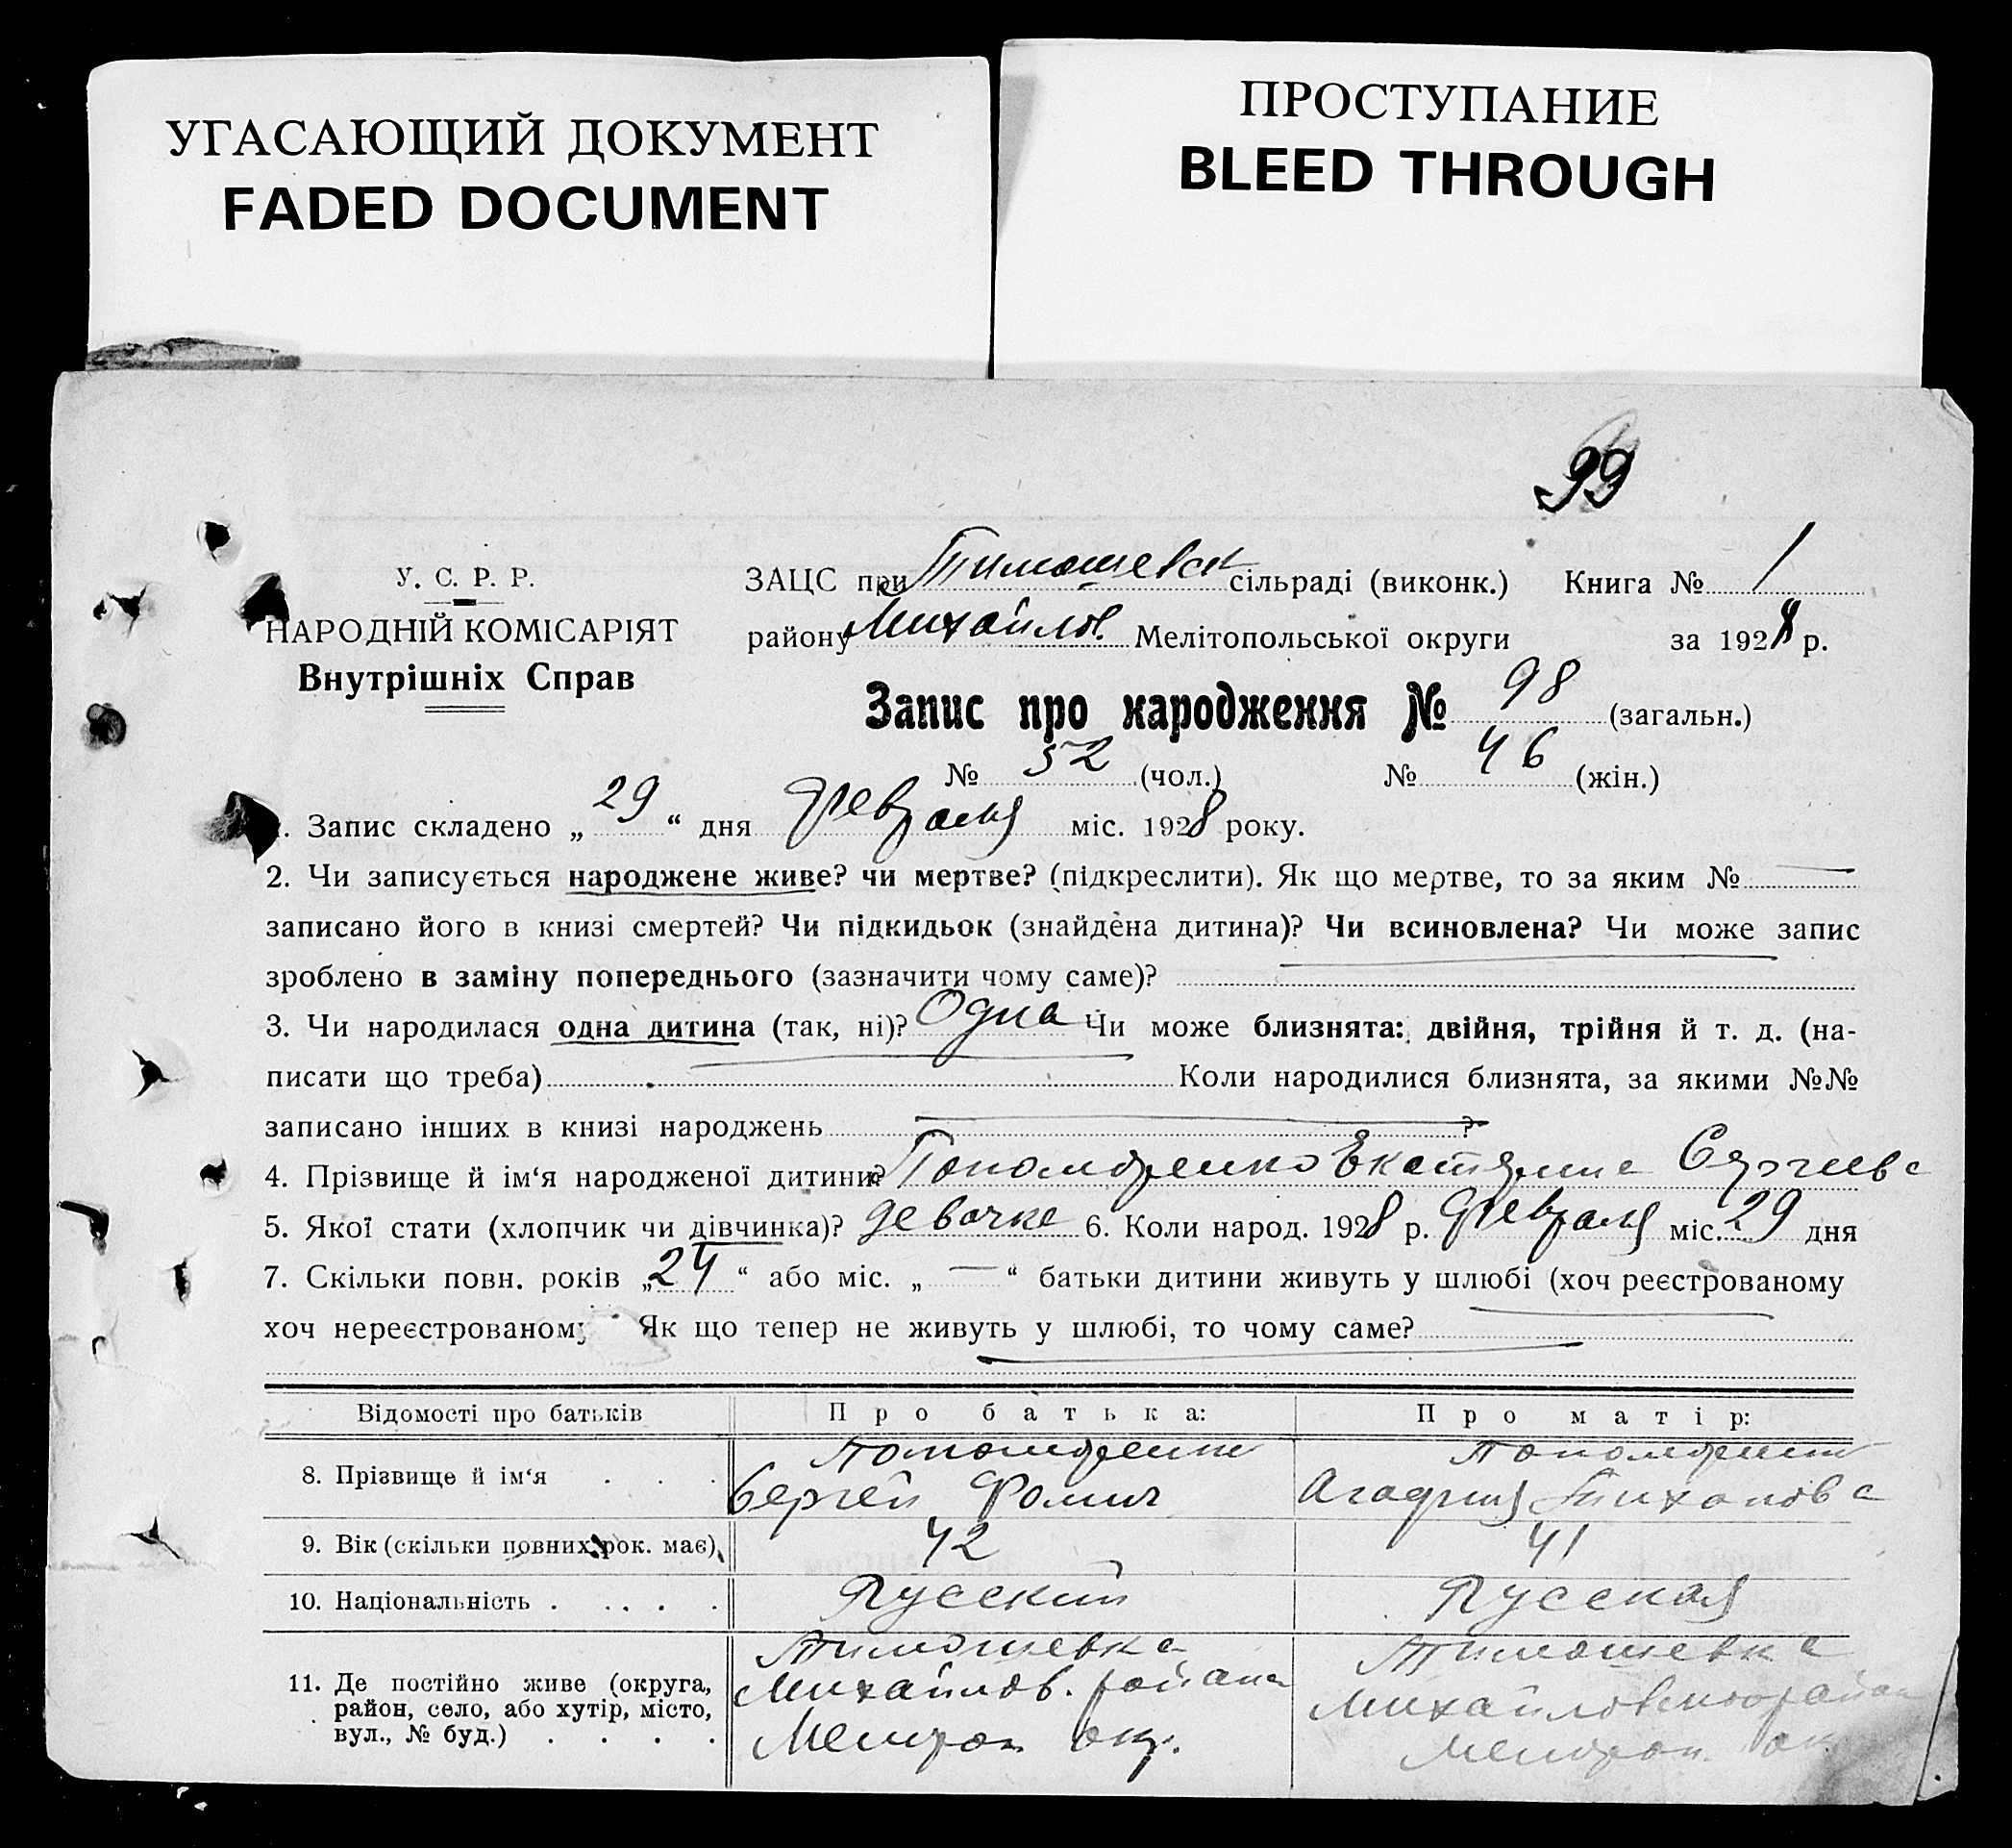 УГАСАЮЩИЙ ДОКУМЕНТ
FADED DOCUMENT
ПРОСТУПАНИЕ
BLEED THROUGH
99
У. С. Р. Р.
НАРОДНІЙ КОМІСАРІЯТ
Внутрішніх Справ
ЗАЦС при Тимошевск сільраді (виконк.) Книга № 1
району Михайлов. Мелітопольської округи за 1928 р.
Запис про народження № 98 (загальн.)
№ 52 (чол.) № 46 (жін.)
1. Запис складено „ 29 “ дня февраля міс. 1928 року.
2. Чи записується народжене живе? чи мертве? (підкреслити). Як що мертве, то за яким № —
записано його в книзі смертей? Чи підкидьок (знайдена дитина)? Чи всиновлена? Чи може запис
зроблено в заміну попереднього (зазначити чому саме)?
3. Чи народилася одна дитина (так, ні)? Одна Чи може близнята: двійня, трійня й т. д. (на-
писати що треба) Коли народилися близнята, за якими №№
записано інших в книзі народжень ?
4. Прізвище й ім‘я народженої дитини? Пономаренко Екатерина Сергиева
5. Якої стати (хлопчик чи дівчинка)? девочка 6. Коли народ. 1928 р. февраля міс. 29 дня
7. Скільки повн. років „ 24 “ або міс. „ — “ батьки дитини живуть у шлюбі (хоч реєстрованому
хоч нереєстрованому Як що тепер не живуть у шлюбі, то чому саме?
Відомості про батьків Про батька: Про матір:
8. Прізвище й ім‘я . . . Пономаренко Сергей Фомич Пономаренко Агафия Тихонова
9. Вік (скільки повних рок. має) 42 41
10. Національність . . . . . Русский Русская
11. Де постійно живе (округа, район, село, або хутір, місто, вул., № буд.) . . . .
Тимошевка
Михайлов. района
Мелитоп окр.
Тимошевка
Михайловского район
Мелитоп. ок